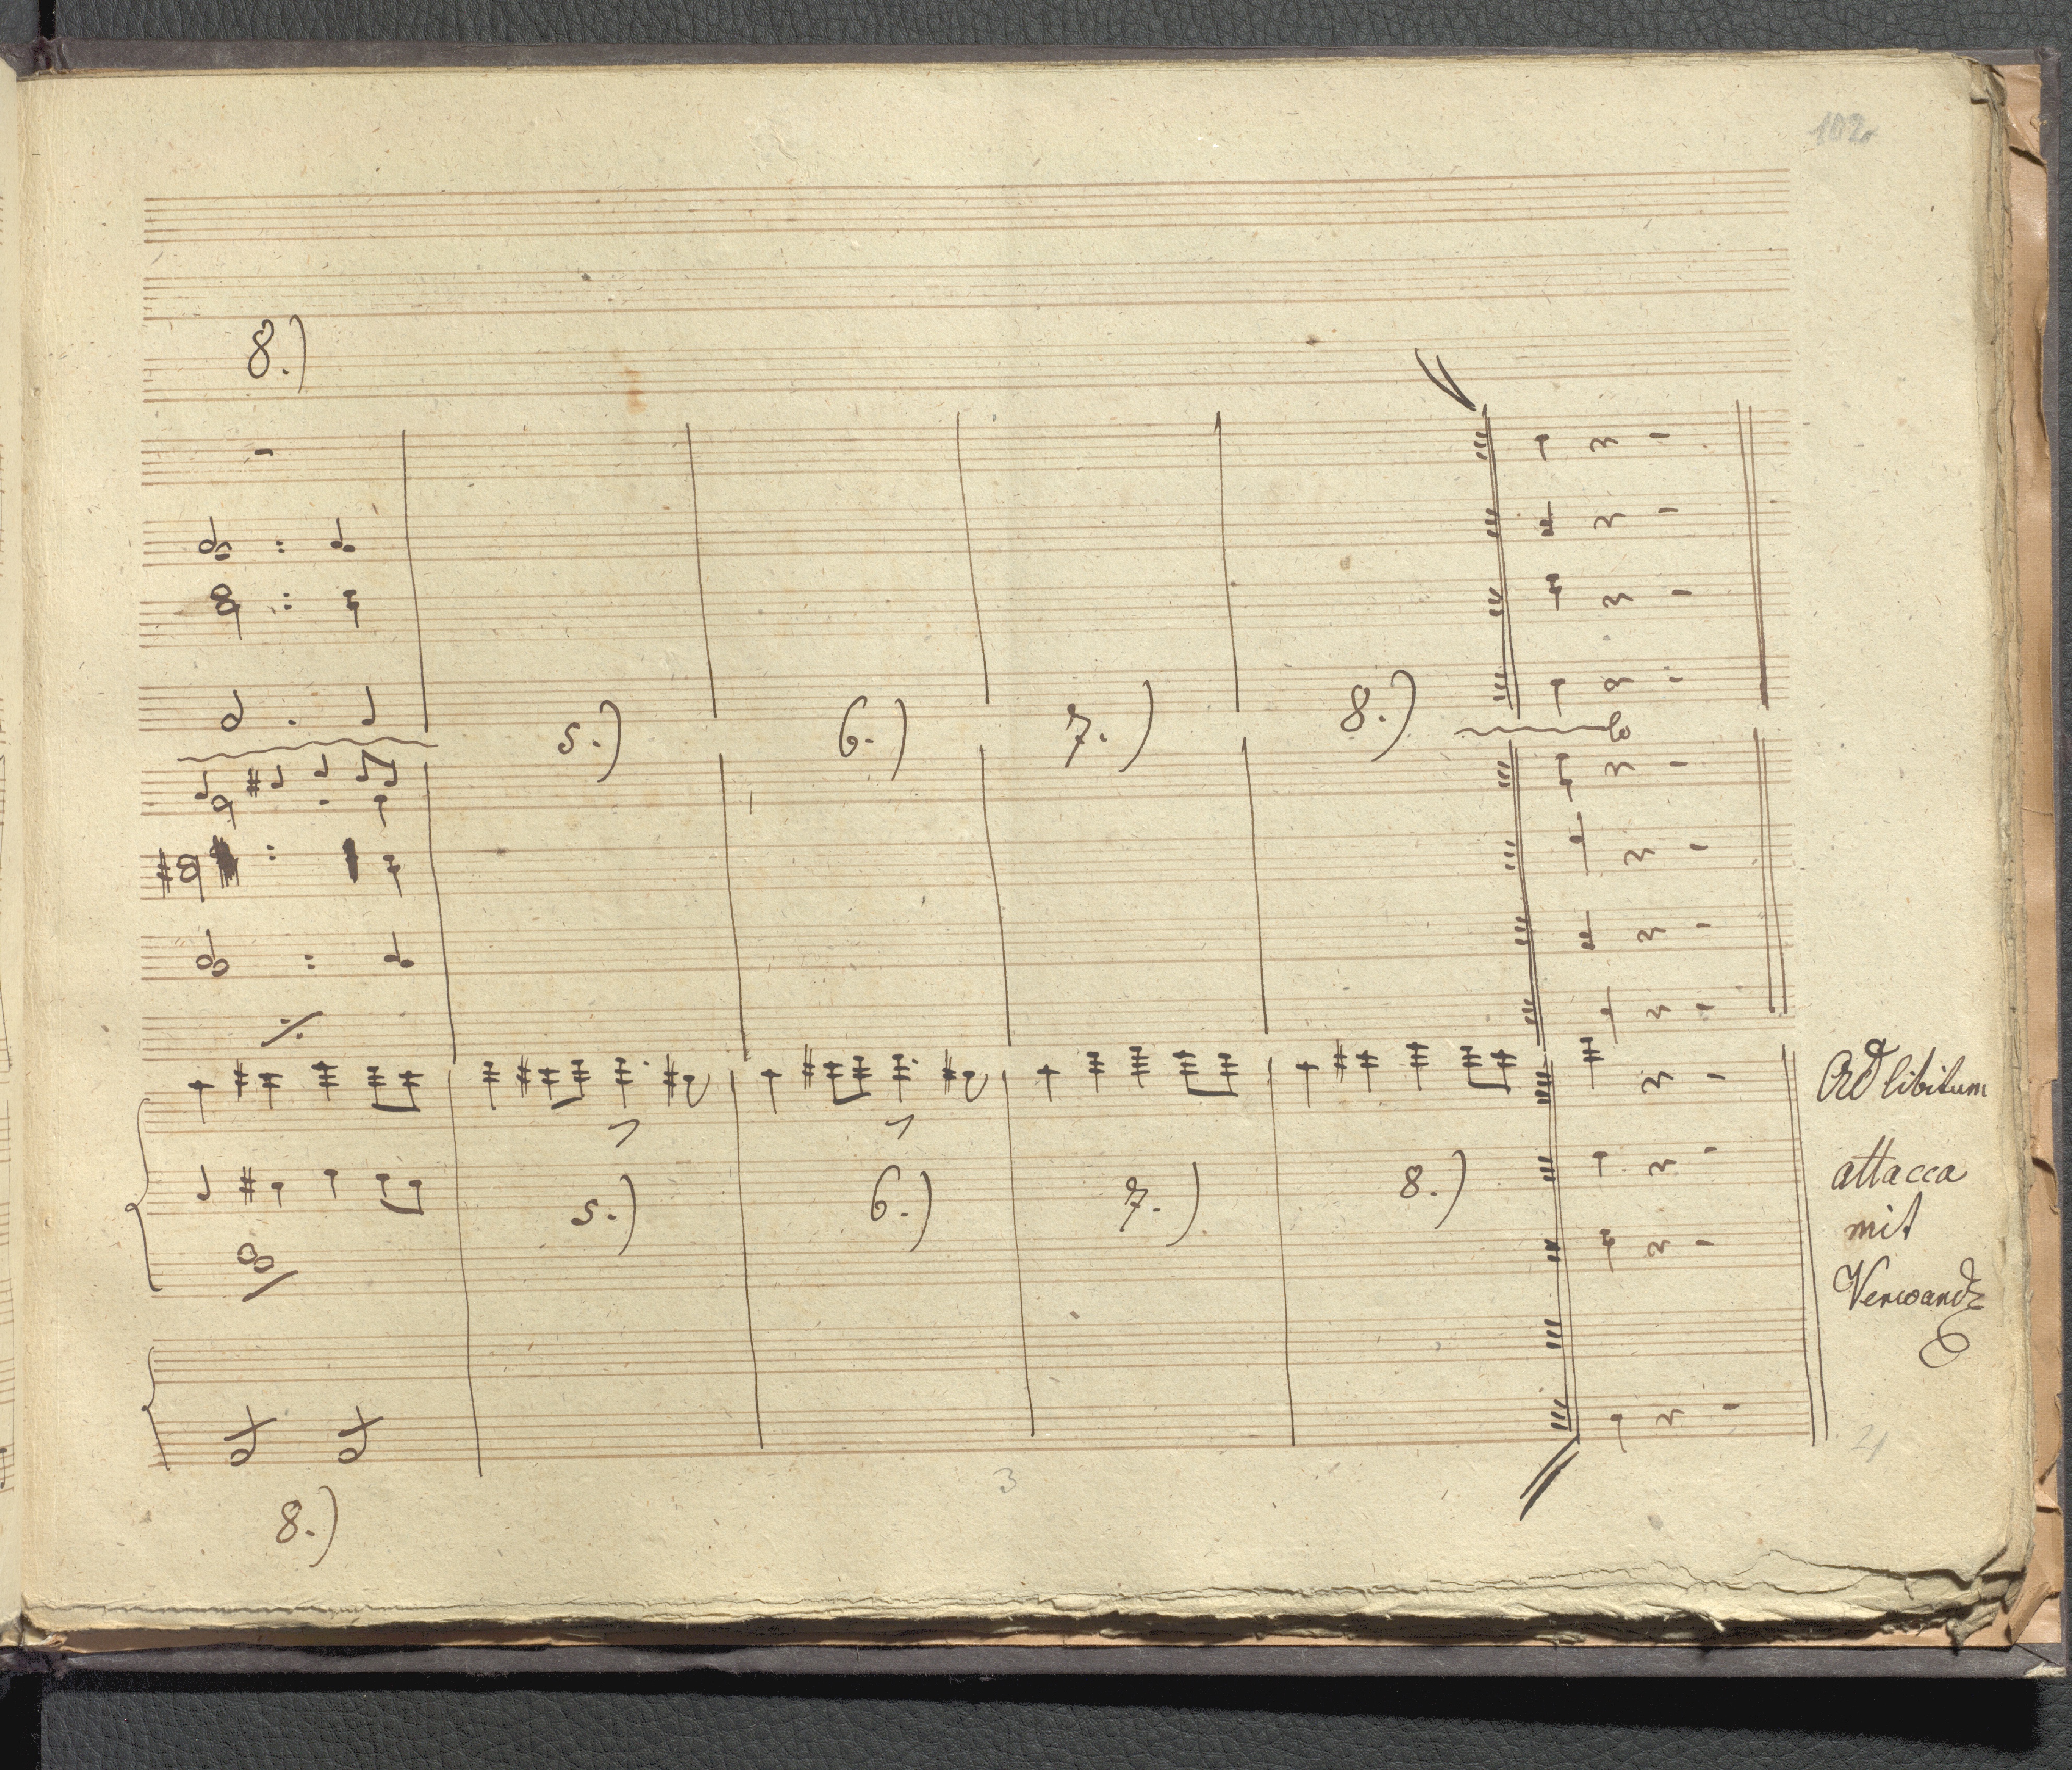 102
8.)
5.) 6.) 7.) 8.)
Ad libitum
attacca
mit
5.) 6.) 7.) 8.)
3
8.)